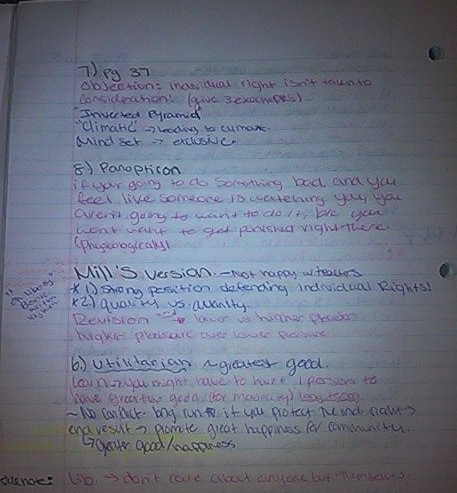 7.) pg 37
Objection: individual right isn't taken to
consideration! (give 3 examples)
"Inverted Pyramid
"Climatic" → leading to climate.
Mind set → exclusive.
8.) Panopticon
if your going to do something bad, and you
feel live someone is watching you, you
aren't going to want to do it, b/c you
won't want to get punished right there
Mill's version - Not happy w/
* 1) Strong position defending individual Rights!
* 2) quality vs. quanity.
Revision → lower vs higher pleasure
higher pleasure over lower pleasure
6.) Utilitarian ~ greatest good.
Learn → you might have to hurt 1 person to
have greater good (for majority)
~ No conflict long run if you protect the indi. right →
end result → promote great happiness for community.
↳ Greater good/happiness
sidenote: Lib. → don't care about anyone but themselves.